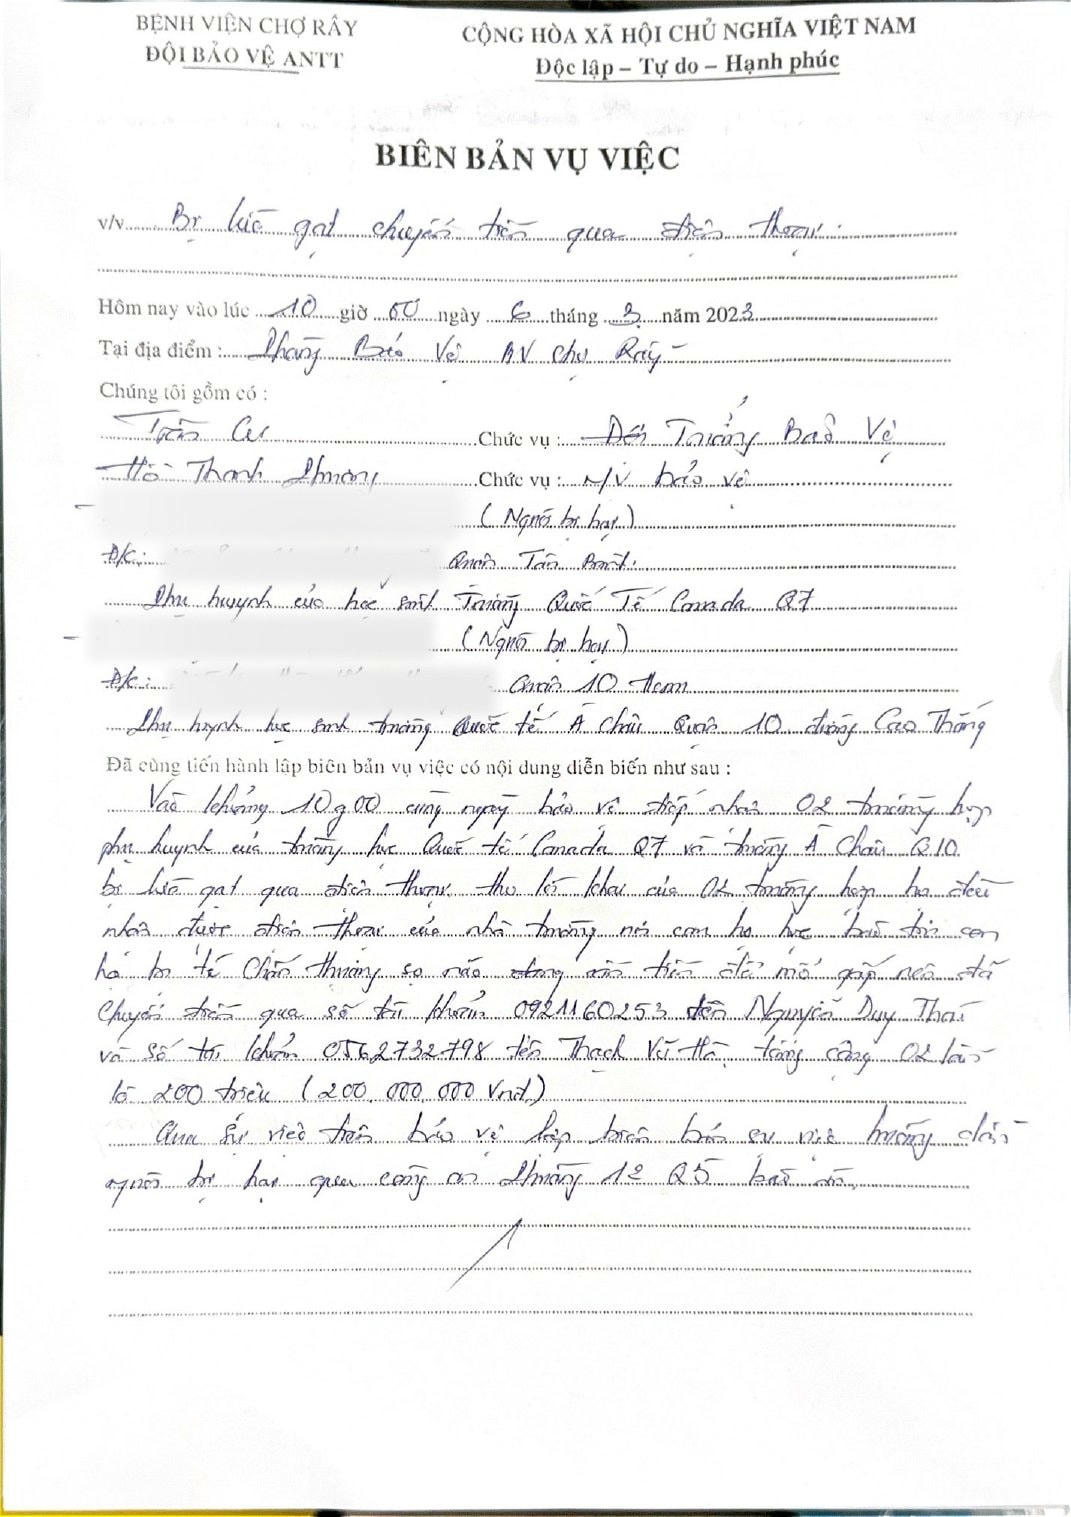 BỆNH VIỆN CHỢ RẪY
ĐỘI BẢO VỆ ANTT
CỘNG HÒA XÃ HỘI CHỦ NGHĨA VIỆT NAM
Độc lập – Tự do – Hạnh phúc
BIÊN BẢN VỤ VIỆC
v/v Bị lừa gạt chuyển tiền qua điện thoại.
Hôm nay vào lúc 10 giờ 00 ngày 6 tháng 3 năm 2023
Tại địa điểm : Phòng Bảo Vệ BV Chợ Rẫy
Chúng tôi gồm có :
Trần Chức vụ : Đội Trưởng Bảo Vệ
Hồ Thanh Phương Chức vụ : N/V bảo vệ
(Người bị hại)
Đ/C: Quận Tân Bình.
Phụ huynh của học sinh Trường Quốc Tế Canada Q7
(Người bị hại)
Đ/C: Quận 10 Hcm
Phụ huynh học sinh trường Quốc tế Á Châu Quận 10 đường Cao Thắng
Đã cùng tiến hành lập biên bản vụ việc có nội dung diễn biến như sau :
Vào khoảng 10g00 cùng ngày bảo vệ tiếp nhận 02 trường hợp
phụ huynh của trường học Quốc tế Canada Q7 và trường Á Châu Q10
bị lừa gạt qua điện thoại. theo lời khai của 02 trường hợp họ đều
nhận được điện thoại của nhà trường nói con họ học báo tin con
họ bị té Chấn thương sọ não cần tiền để mổ gấp nên đã
chuyển tiền qua số tài khoản 0921160253 tên Nguyễn Duy Thái
và số tài khoản 0562732798 tên Thạch Vũ Hà tổng cộng 02 lần
là 200 triệu (200.000.000 Vnđ)
Qua sự việc trên bảo vệ lập biên bản sự việc hướng dẫn
người bị hại qua công an Phường 12 Q5 báo án.